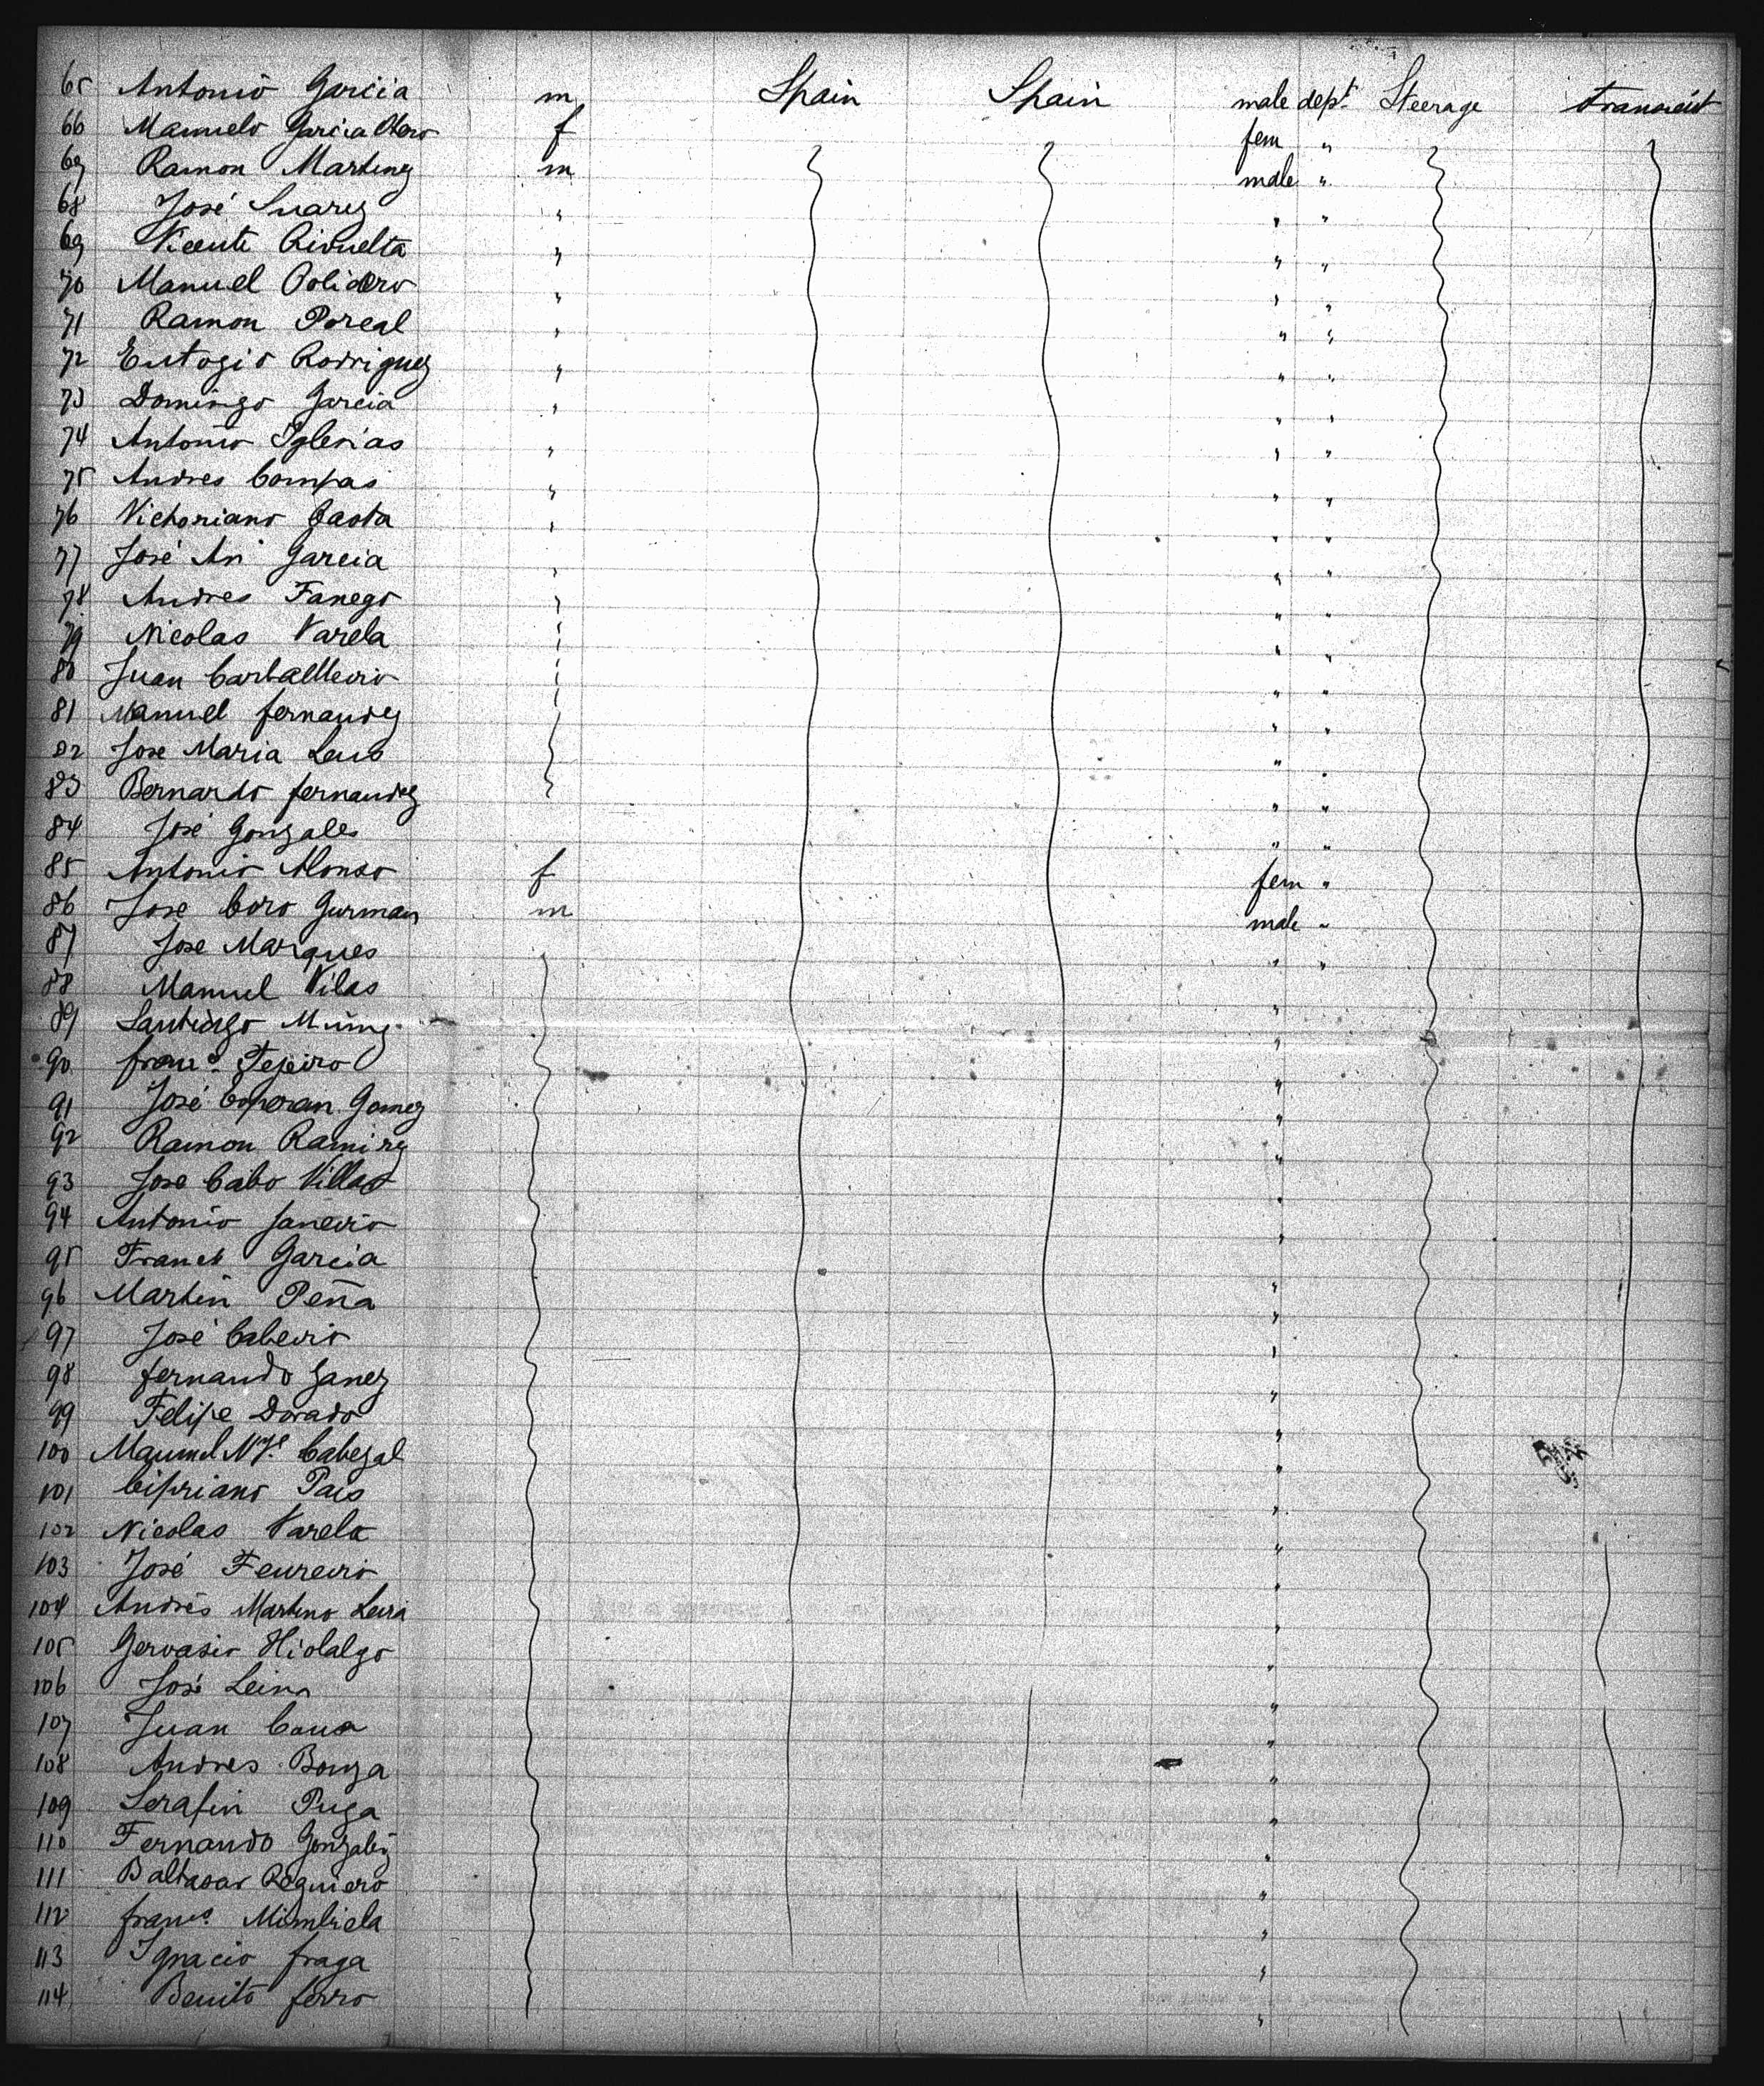 65 Antonio Garcia m Spain Spain male dept. Steerage transit
66 Manuelo Garcia Otero f fem "
67 Ramon Martinez m male "
68 José Suarez " " "
69 Vicente Rivuelta " " "
70 Manuel Polidoro " " "
71 Ramon Poreal " " "
72 Eutogio Rodriguez " " "
73 Domingo Garcia " " "
74 Antonio Iglesias " " "
75 Andres Compas " " "
76 Victoriano Gaota " " "
77 José An Garcia " " "
78 Andres Fanego " " "
79 Nicolas Varela " "
80 Juan Carballleiro " "
81 Manuel fernandez " "
82 Jose Maria Leus " "
83 Bernardo fernandez " "
84 José Gonzales " "
85 Antonio Alonso f fem "
86 Jose Coro Gurman m male "
87 Jose Marques " "
88 Manuel Vilas "
89 Santiago "
90 franco. Tejeiro "
91 José Gomez "
92 Ramon Ramirez "
93 Jose Cabo Villas "
94 Antonio Janeiro "
95 Garcia "
96 Martin Peña "
97 José Cabeiro "
98 fernando Janez "
99 Felipe Dorado "
100 Manuel Cabezal "
101 Cipriano Pais "
102 Nicolas Varela "
103 José Feureiro "
104 Andrés Martino Leira "
105 Gervasio Hidalgo "
106 José Leina "
107 Juan Cousa "
108 Andres Bouza "
109 Serafin Puga "
110 Fernando Gonzalez "
111 Baltasar Reguiero "
112 franco. Mimbiela "
113 Ignacio fraga "
114 Benito ferro "